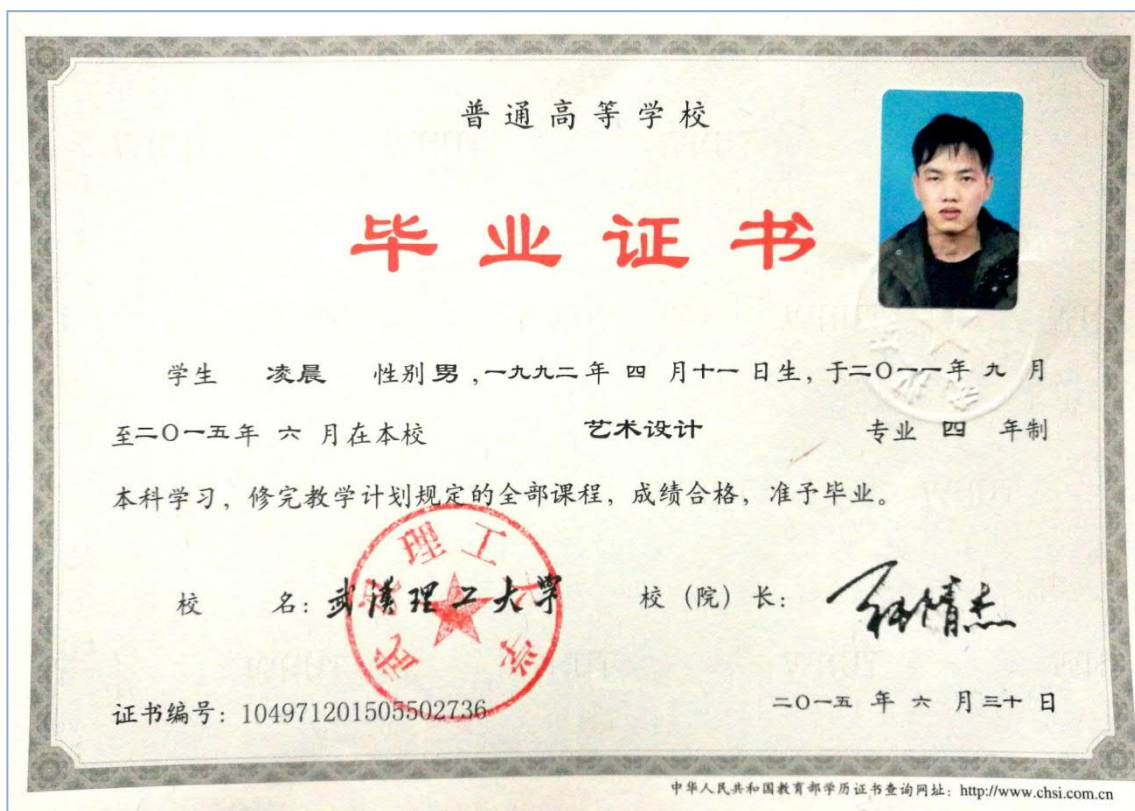 普通高等学校
毕业证书
学生 凌晨 性别 男 ,一九九二年 四 月十一日生, 于二〇一一年 九 月
至二〇一五年 六 月在本校 艺术设计 专业 四 年制
本科学习, 修完教学计划规定的全部课程, 成绩合格, 准予毕业。
校 名: 武汉理工大学 校(院)长:
武汉理工大学
证书编号: 104971201505502736 二〇一五 年 六 月三十日
中华人民共和国教育部学历证书查询网址: http://www.chsi.com.cn